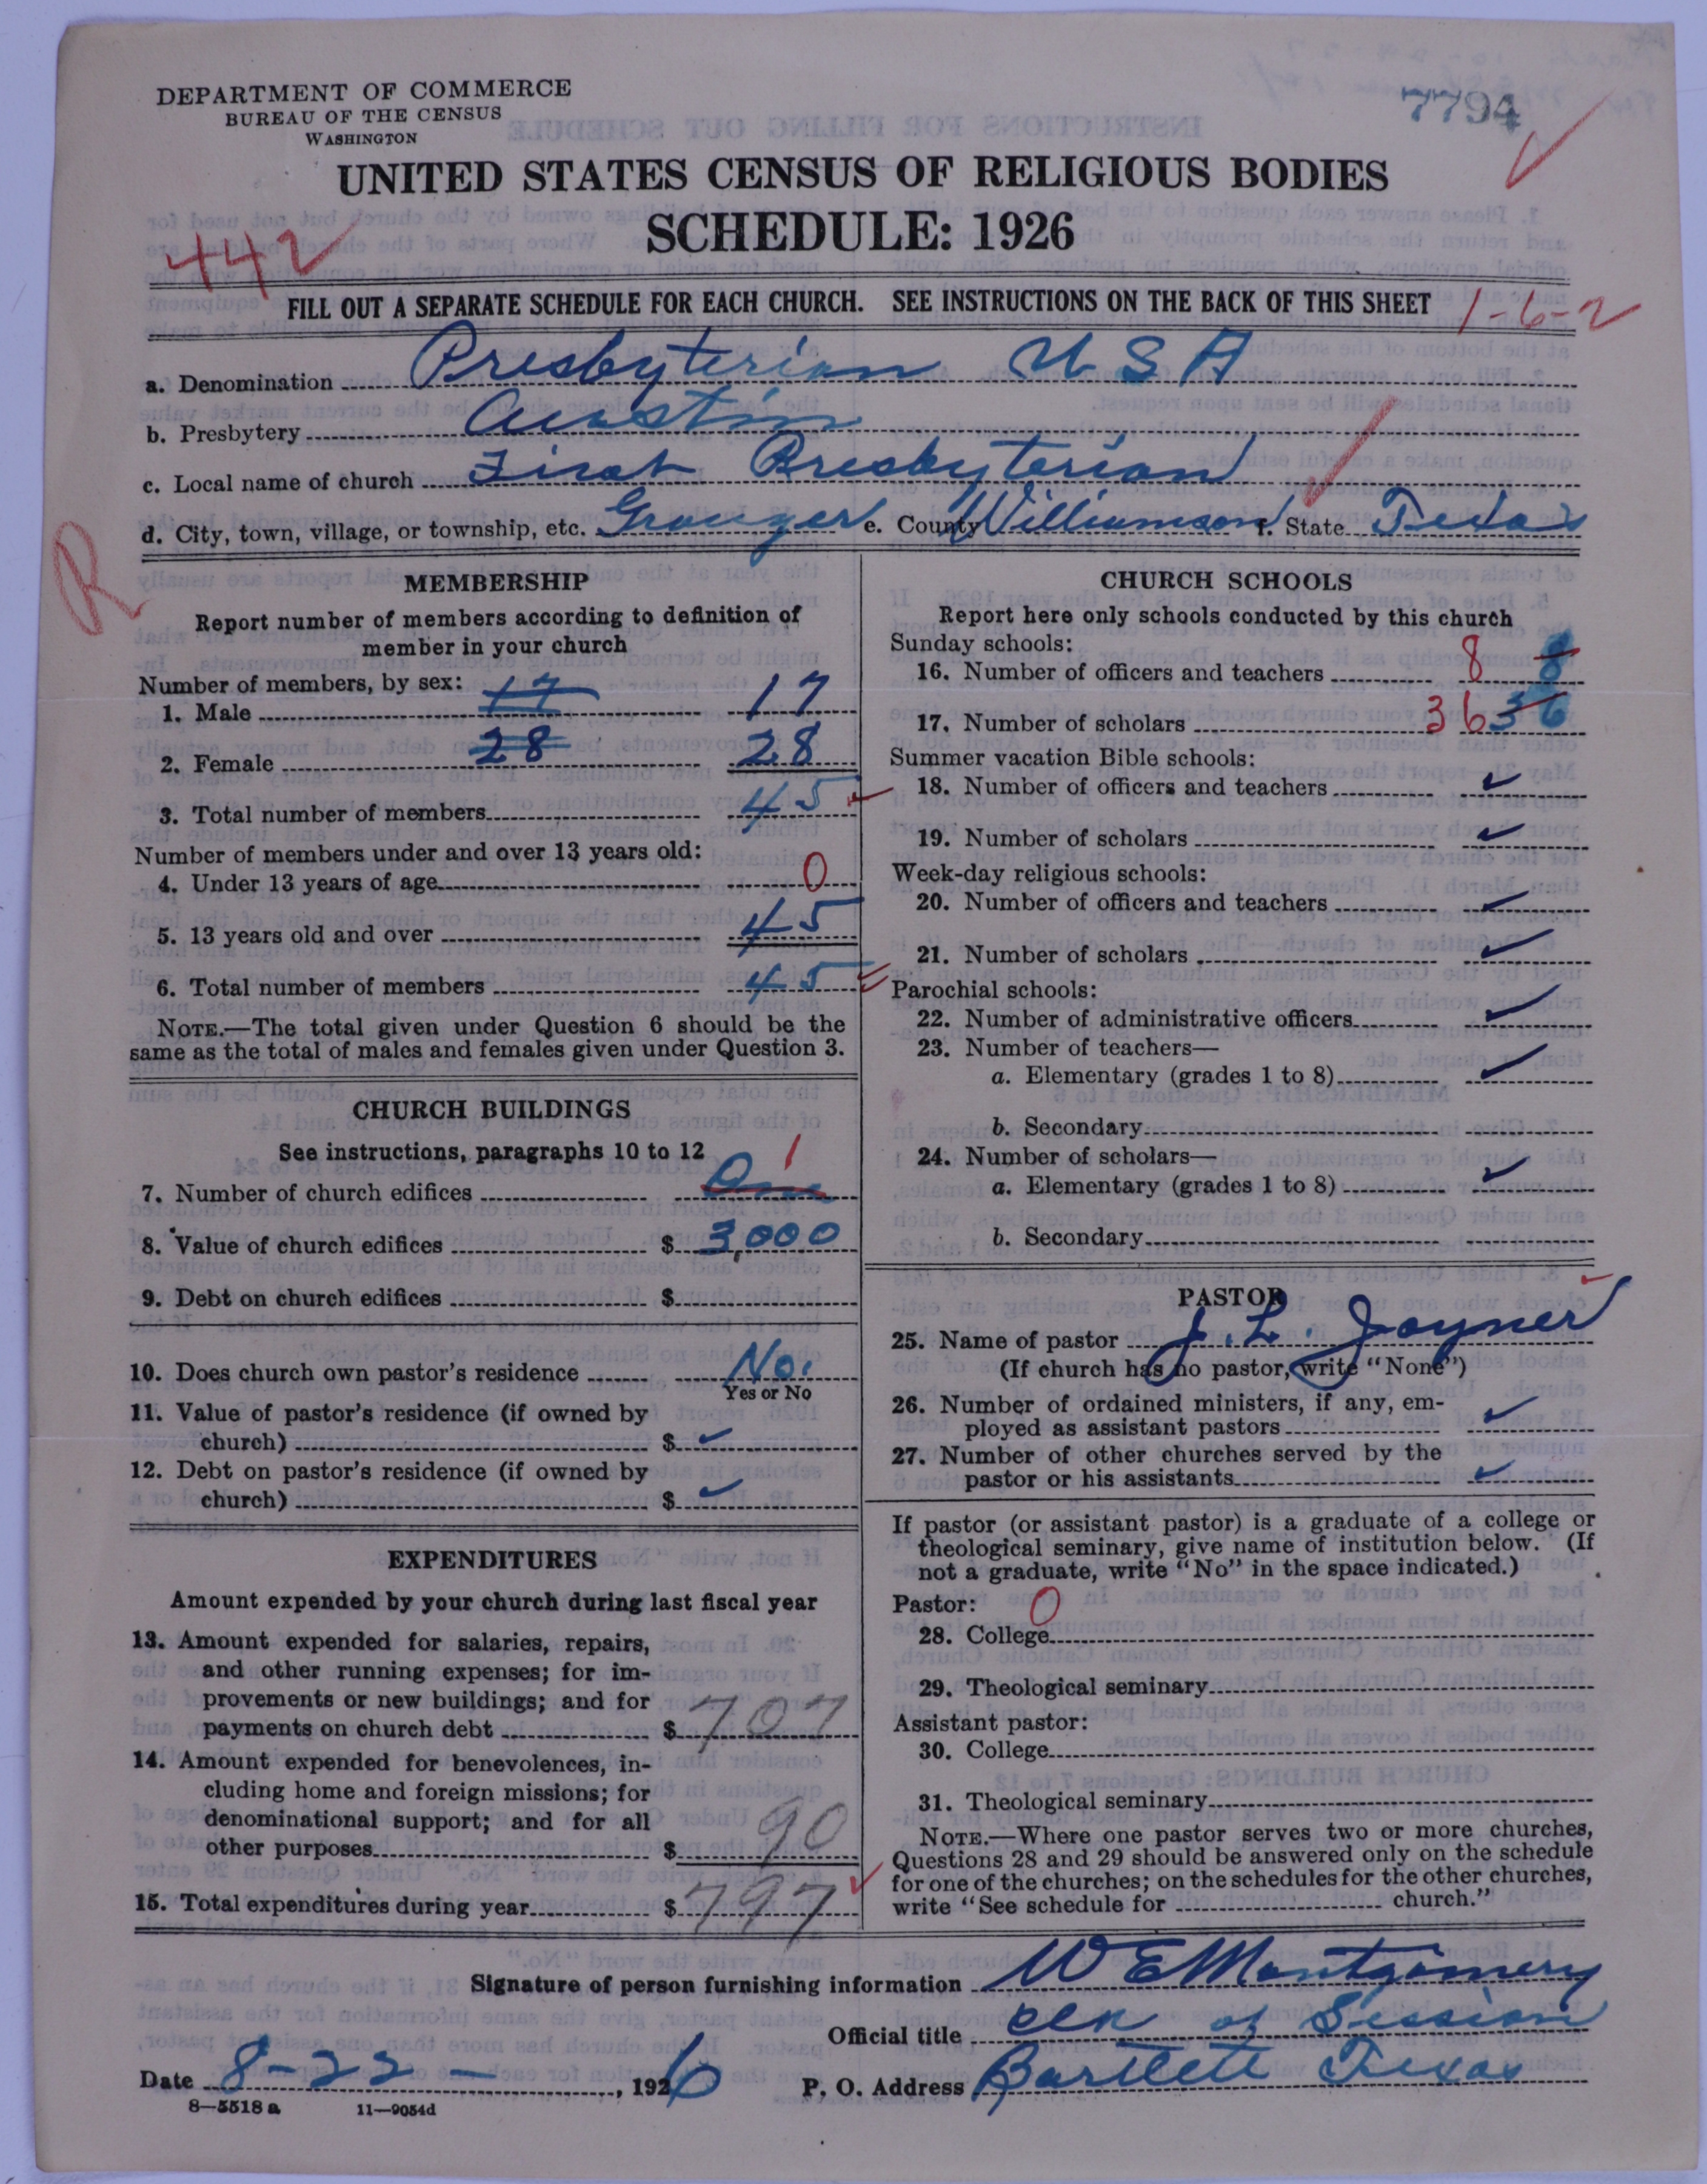 DEPARTMENT OF COMMERCE
BUREAU OF THE CENSUS
WASHINGTON
7794
UNITED STATES CENSUS OF RELIGIOUS BODIES
SCHEDULE: 1926
442
FILL OUT A SEPARATE SCHEDULE FOR EACH CHURCH. SEE INSTRUCTIONS ON THE BACK OF THIS SHEET 1-6-2
a. Denomination Presbyterian U S A
b. Presbytery Austin
c. Local name of church First Presbyterian
d. City, town, village, or township, etc. Granger e. County Williamson f. State Texas
R
MEMBERSHIP
Report number of members according to definition of
member in your church
Number of members, by sex:
1. Male 17 17
2. Female 28 28
3. Total number of members 45
Number of members under and over 13 years old:
4. Under 13 years of age 0
5. 13 years old and over 45
6. Total number of members 45
NOTE.—The total given under Question 6 should be the
same as the total of males and females given under Question 3.
CHURCH BUILDINGS
See instructions, paragraphs 10 to 12
7. Number of church edifices One 1
8. Value of church edifices $ 3,000
9. Debt on church edifices $
10. Does church own pastor's residence No.
Yes or No
11. Value of pastor's residence (if owned by
church) $ ✓
12. Debt on pastor's residence (if owned by
church) $ ✓
EXPENDITURES
Amount expended by your church during last fiscal year
13. Amount expended for salaries, repairs,
and other running expenses; for im-
provements or new buildings; and for
payments on church debt $ 707
14. Amount expended for benevolences, in-
cluding home and foreign missions; for
denominational support; and for all
other purposes $ 90
15. Total expenditures during year $ 797
CHURCH SCHOOLS
Report here only schools conducted by this church
Sunday schools:
16. Number of officers and teachers 8 8
17. Number of scholars 36 36
Summer vacation Bible schools:
18. Number of officers and teachers ✓
19. Number of scholars ✓
Week-day religious schools:
20. Number of officers and teachers ✓
21. Number of scholars ✓
Parochial schools:
22. Number of administrative officers ✓
23. Number of teachers—
a. Elementary (grades 1 to 8) ✓
b. Secondary
24. Number of scholars—
a. Elementary (grades 1 to 8) ✓
b. Secondary
PASTOR
25. Name of pastor J. L. Joyner
(If church has no pastor, write "None")
26. Number of ordained ministers, if any, em-
ployed as assistant pastors ✓
27. Number of other churches served by the
pastor or his assistants ✓
If pastor (or assistant pastor) is a graduate of a college or
theological seminary, give name of institution below. (If
not a graduate, write "No" in the space indicated.)
Pastor: 0
28. College
29. Theological seminary
Assistant pastor:
30. College
31. Theological seminary
NOTE.—Where one pastor serves two or more churches,
Questions 28 and 29 should be answered only on the schedule
for one of the churches; on the schedules for the other churches,
write "See schedule for church."
Signature of person furnishing information W E Montgomery
Official title Clk of Session
Date 8-22-, 1926 P. O. Address Bartlett Texas
8—5518 a 11—9054d